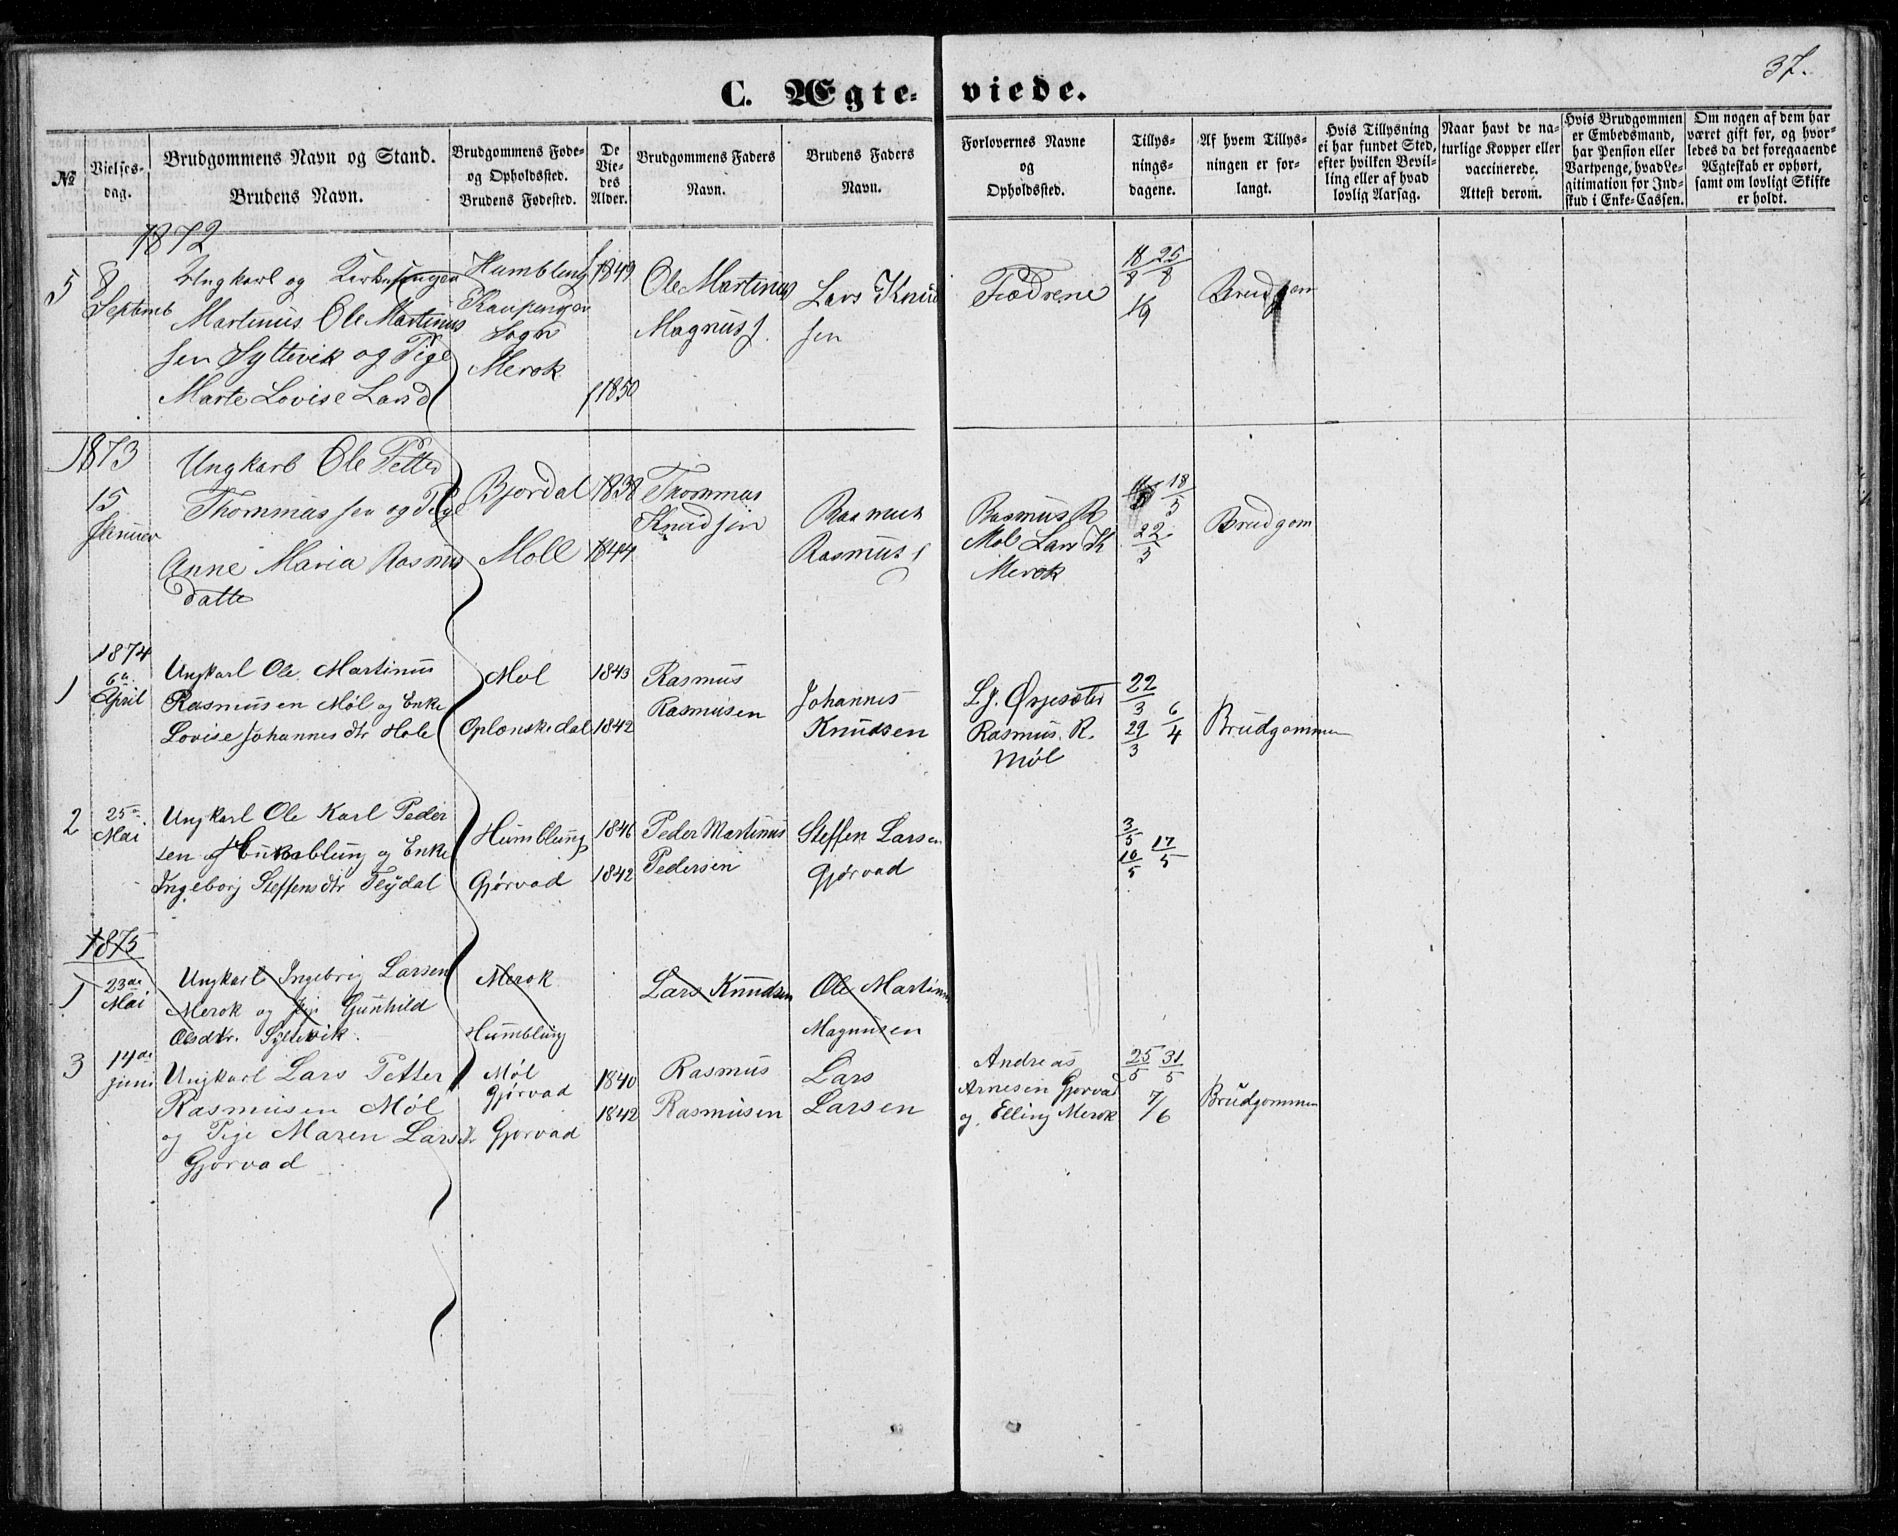 37.
C. Ægte- viede.
№
Vielses-
dag.
Brudgommens Navn og Stand.
Brudens Navn.
Brudgommens Føde-
og Opholdssted.
Brudens Fødested.
De
Vie-
des
Alder.
Brudgommens Faders
Navn.
Brudens Faders
Navn.
Forlovernes Navne
og
Opholdssted.
Tillys-
nings-
dagene.
Af hvem Tillys-
ningen er for-
langt.
Hvis Tillysning
ei har fundet Sted,
efter hvilken Bevil-
ling eller af hvad
lovlig Aarsag.
Naar havt de na-
turlige Kopper eller
vaccinerede.
Attest derom.
Hvis Brudgommen
er Embedsmand,
har Pension eller
Vartpenge, hvad Le-
gitimation for Ind-
skud i Enke-Cassen.
Om nogen af dem har
været gift før, og hvor-
ledes da det foregaaende
Ægteskab er ophørt,
samt om lovligt Skifte
er holdt.
1872
5
8
Septemb
Ungkarl og Kirkesanger
Martinus Ole Martinus
sen Syltevik og Pige
Marte Lovise Larsd
Humblung
Raupanger
Sogn
Merok
1849
1850
Ole Martinus
Magnus s.
Lars Knud
sen
Fædrene
18/8 25/8
1/9
Brudgom
1873
15
Januar
Ungkarl Ole Petter
Thommas sen og Pige
Anne Maria Rasmus
datte
Bjordal
Moll
1838
1844
Thommas
Knudsen
Rasmus
Rasmus s
Rasmus R
Mol Lars K
Merok
18/5
22/5
Brudgom
1874
1
6te
April
Ungkarl Ole Martinus
Rasmusen Møl og Enke
Lovise Johannesdtr Hole
Mol
Oplænskedal
1843
1842
Rasmus
Rasmusen
Johannes
Knudsen
L. J. Ørjesæter
Rasmus. R.
Møl
22/3
29/3 6/4
Brudgommen
2
25de
Mai
Ungkarl Ole Karl Peder
sen Humblung og Enke
Ingeborg Steffensdtr Flydal
Humblung
Gjørvad
1846
1842
Peder Martinus
Pedersen
Steffen Larsen
Gjørvad
3/5
10/5 17/5
1875
1
23de
Mai
Ungkarl Ingebrig Larsen
Merok og pige Gunhild
Olsdtr. Syltevik.
Merok
Humblung
Lars Knudsen
Ole Martinus
Magnusen
3
14de
juni
Ungkarl Lars Petter
Rasmusen Møl
og Pige Maren Larsdtr
Gjørvad
Møl
Gjørvad
Gjørvad
1840
1842
Rasmus
Rasmusen
Lars
Larsen
Andreas
Arnesen Gjørvad
og. Elling Merok
25/5 31/5
7/6
Brudgommen